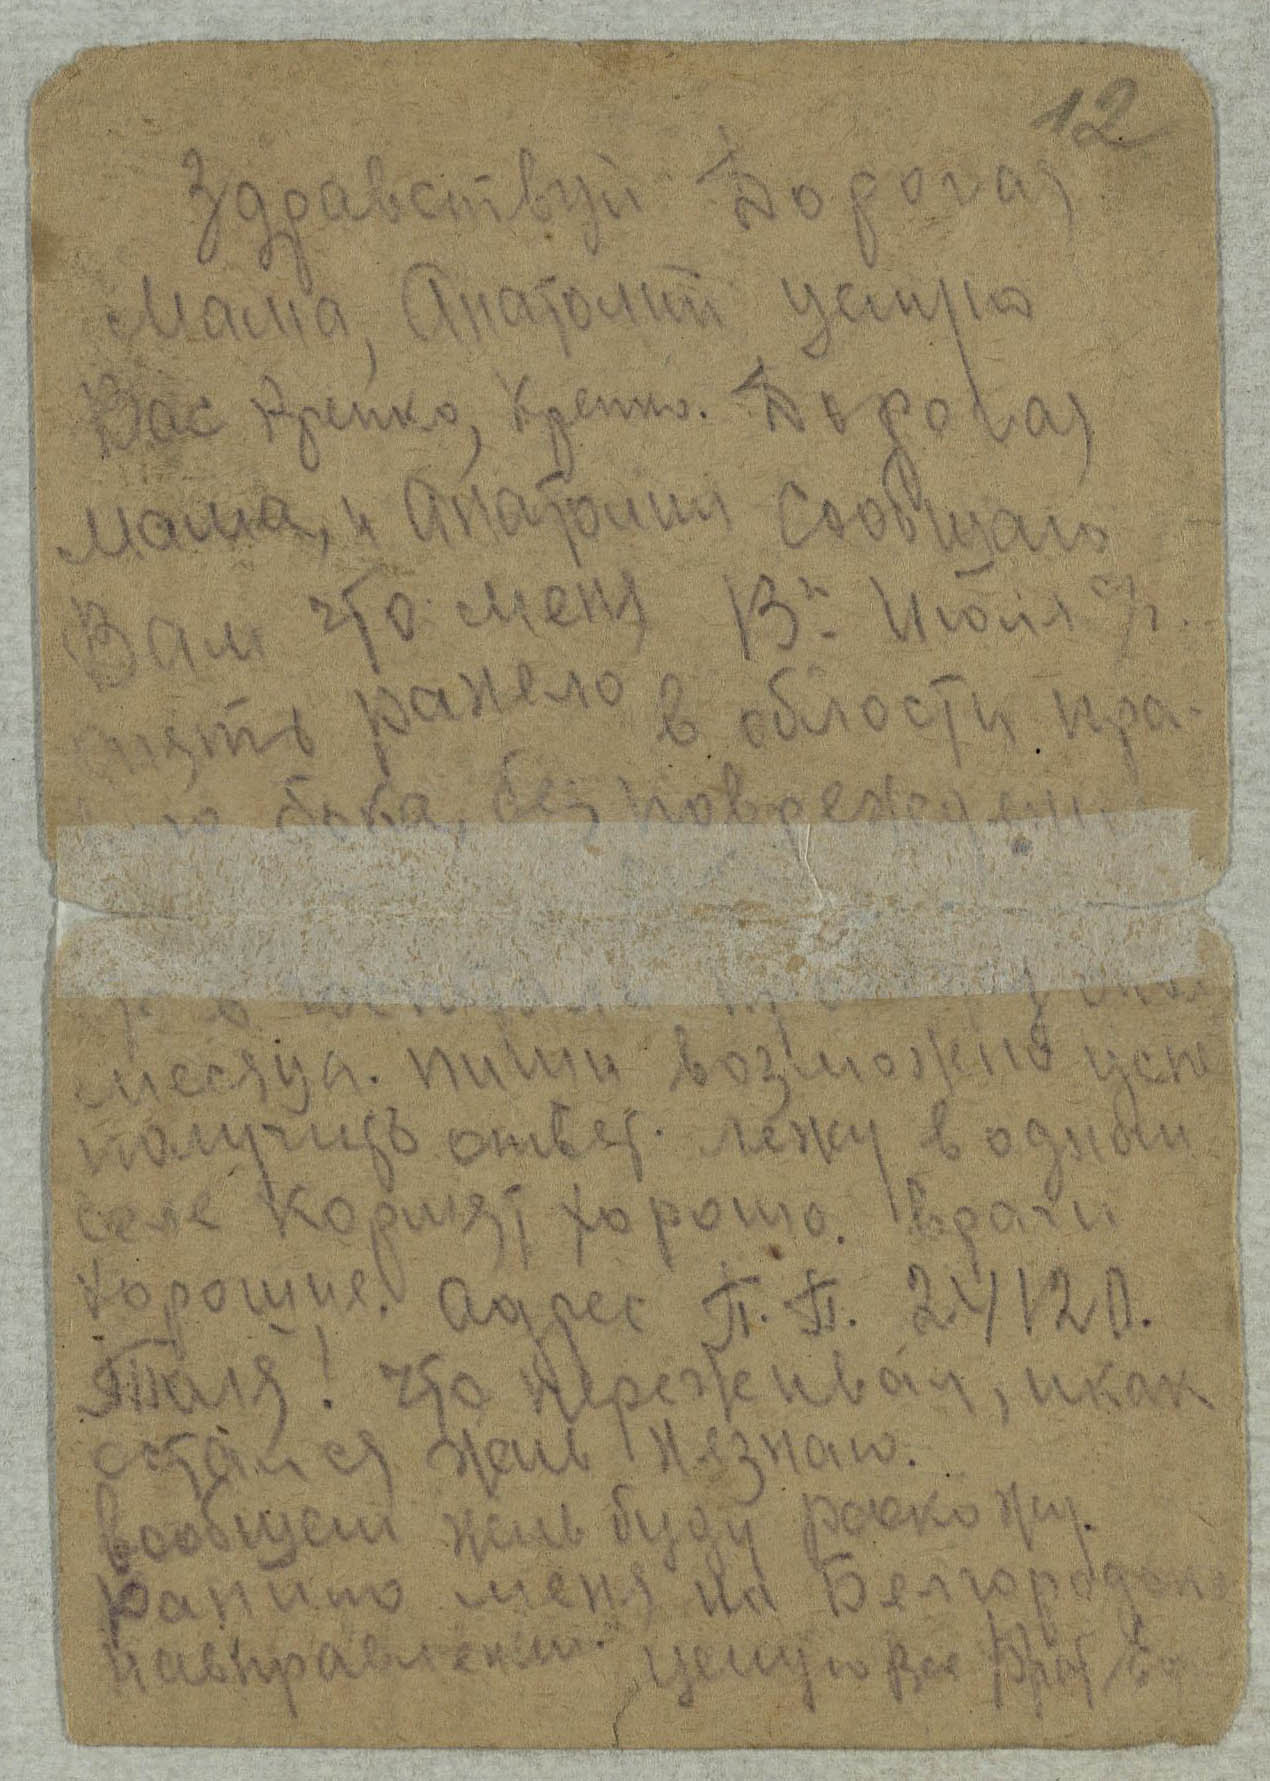 12
Здравствуй Дорогая
Мама, Анатолий целую
Вас крепко, крепко. Дорогая
мама, и Анатолий сообщаю
Вам что меня Июля
опять ранело в области пра-
го бока, без поврежден
в госпитале
месяца. пиши возможно усп
получить ответ. лежу в одном
селе кормят хорошо. врачи
хорошие. адрес П.П. 24120.
Толя! что переживал, и как
остался жив незнаю.
вообщем жив буду роскожу.
Ранило меня на Белгородско
навправлении. целую вас Брат